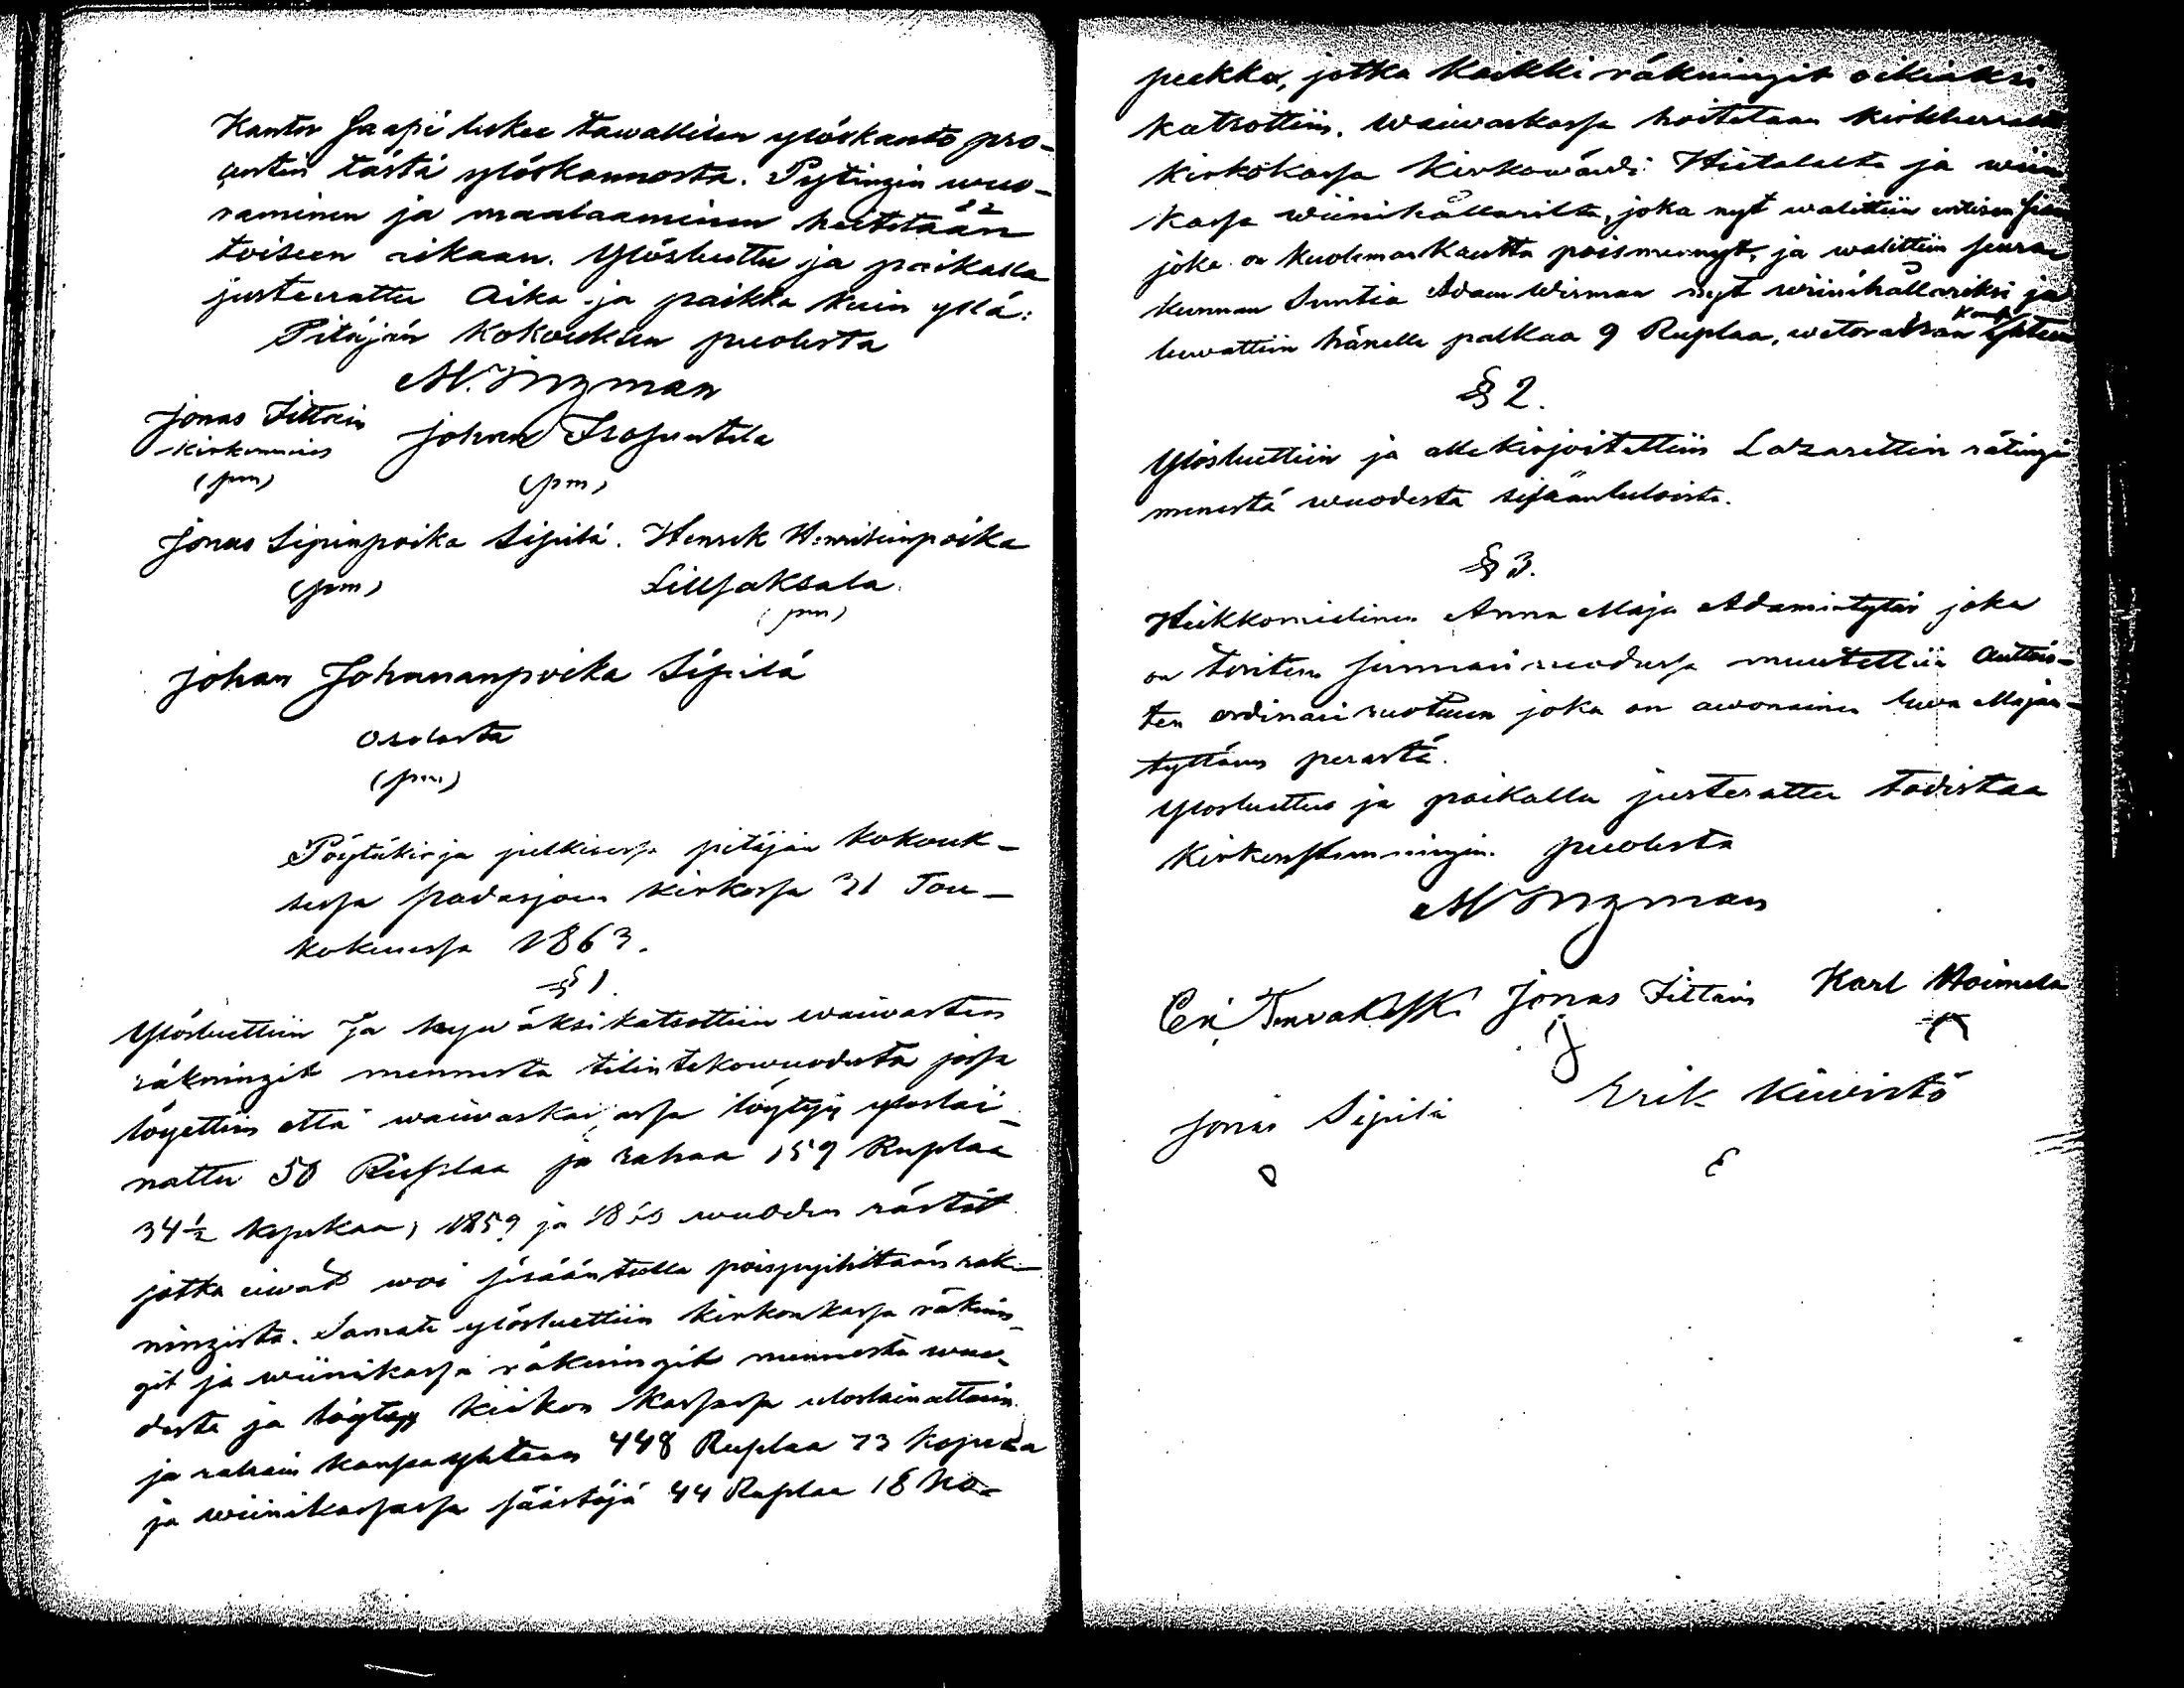 Kantor Saapi laskea tawallisen ylöskanto pro-
sentin tästä ylöskannosta. Pytingin wuo-
raminen ja maalaaminen heitetään
toiseen aikaan. Ylösluettu ja paikalla
justeerattu Aika ja paikka kuin yllä:
Pitäjän Kokouksen puolesta
M. Ingman
Jonas Tittoin Johan Isopentola
Kirkonmies
(pm) (pm)
Jonas Sipinpoika Sipilä. Henrik Henrikinpoika
(pm) Lillsaksala
(pm)
Johan Johananpoika Sipilä
Osolasta
(pm)
Pöytäkirja julkisessa pitäjän kokouk-
sessa padasjoen kirkossa 31 Tou-
kokuussa 1863.
§ 1.
Ylösluettiin Ja hywäksikatsottiin waiwasten
räkningit mennestä tilintekowuodesta jossa
löyettiin että waiwaskassassa löytyy uloslai-
nattu 50 Ruplaa ja rahaa 159 Ruplaa
34½ kopekaa; 1859 ja wuoden rästit
jotka eiwät woi sisääntulla poispyyhittään räk-
ningista. Samate ylösluettiin kirkonkassa räknin-
git ja wiinikassa räkningit mennestä wuo-
desta ja löytyy kirkon kassassa uloslainattuin
ja rahain kanssa yhteen 448 Ruplaa 73 kopekaa
ja wiinikassassa säästöjä 44 Ruplaa 18 ko-
pekka, jotka kaikki räkningit oikiaksi
katsottiin. Waiwaskassa hoitetaan kirkherralta
kirkokassa kirkowärdi Hietalalta ja wiini
kassa wiinihållarilta, joka nyt walittiin entisen
joka on kuoleman kautta poismennyt, ja walittiin seura
kunnan Suntia Adam Wirman nyt wiinihållariksi ja
luwattiin hänelle palkaa 9 Ruplaa, kans yhteen
§ 2.
Ylösluettiin ja allekirjoitettiin Lazarettin rätingi
menestä wuodesta sisääntuloista.
§ 3.
Heikkomielinen Anna Maja Adamintytär joka
on toisten ruodussa muutettiin Auttois-
ten ordinari ruotuun joka on awonainen Majan-
tyttären perästä.
Ylösluettu ja paikalla justerattu todistaa
Kirkonstämningin puolesta
M Ingman
Jonas Tittoin Karl Moimela
J
Jonas Sipilä Erik Kiwistö
E